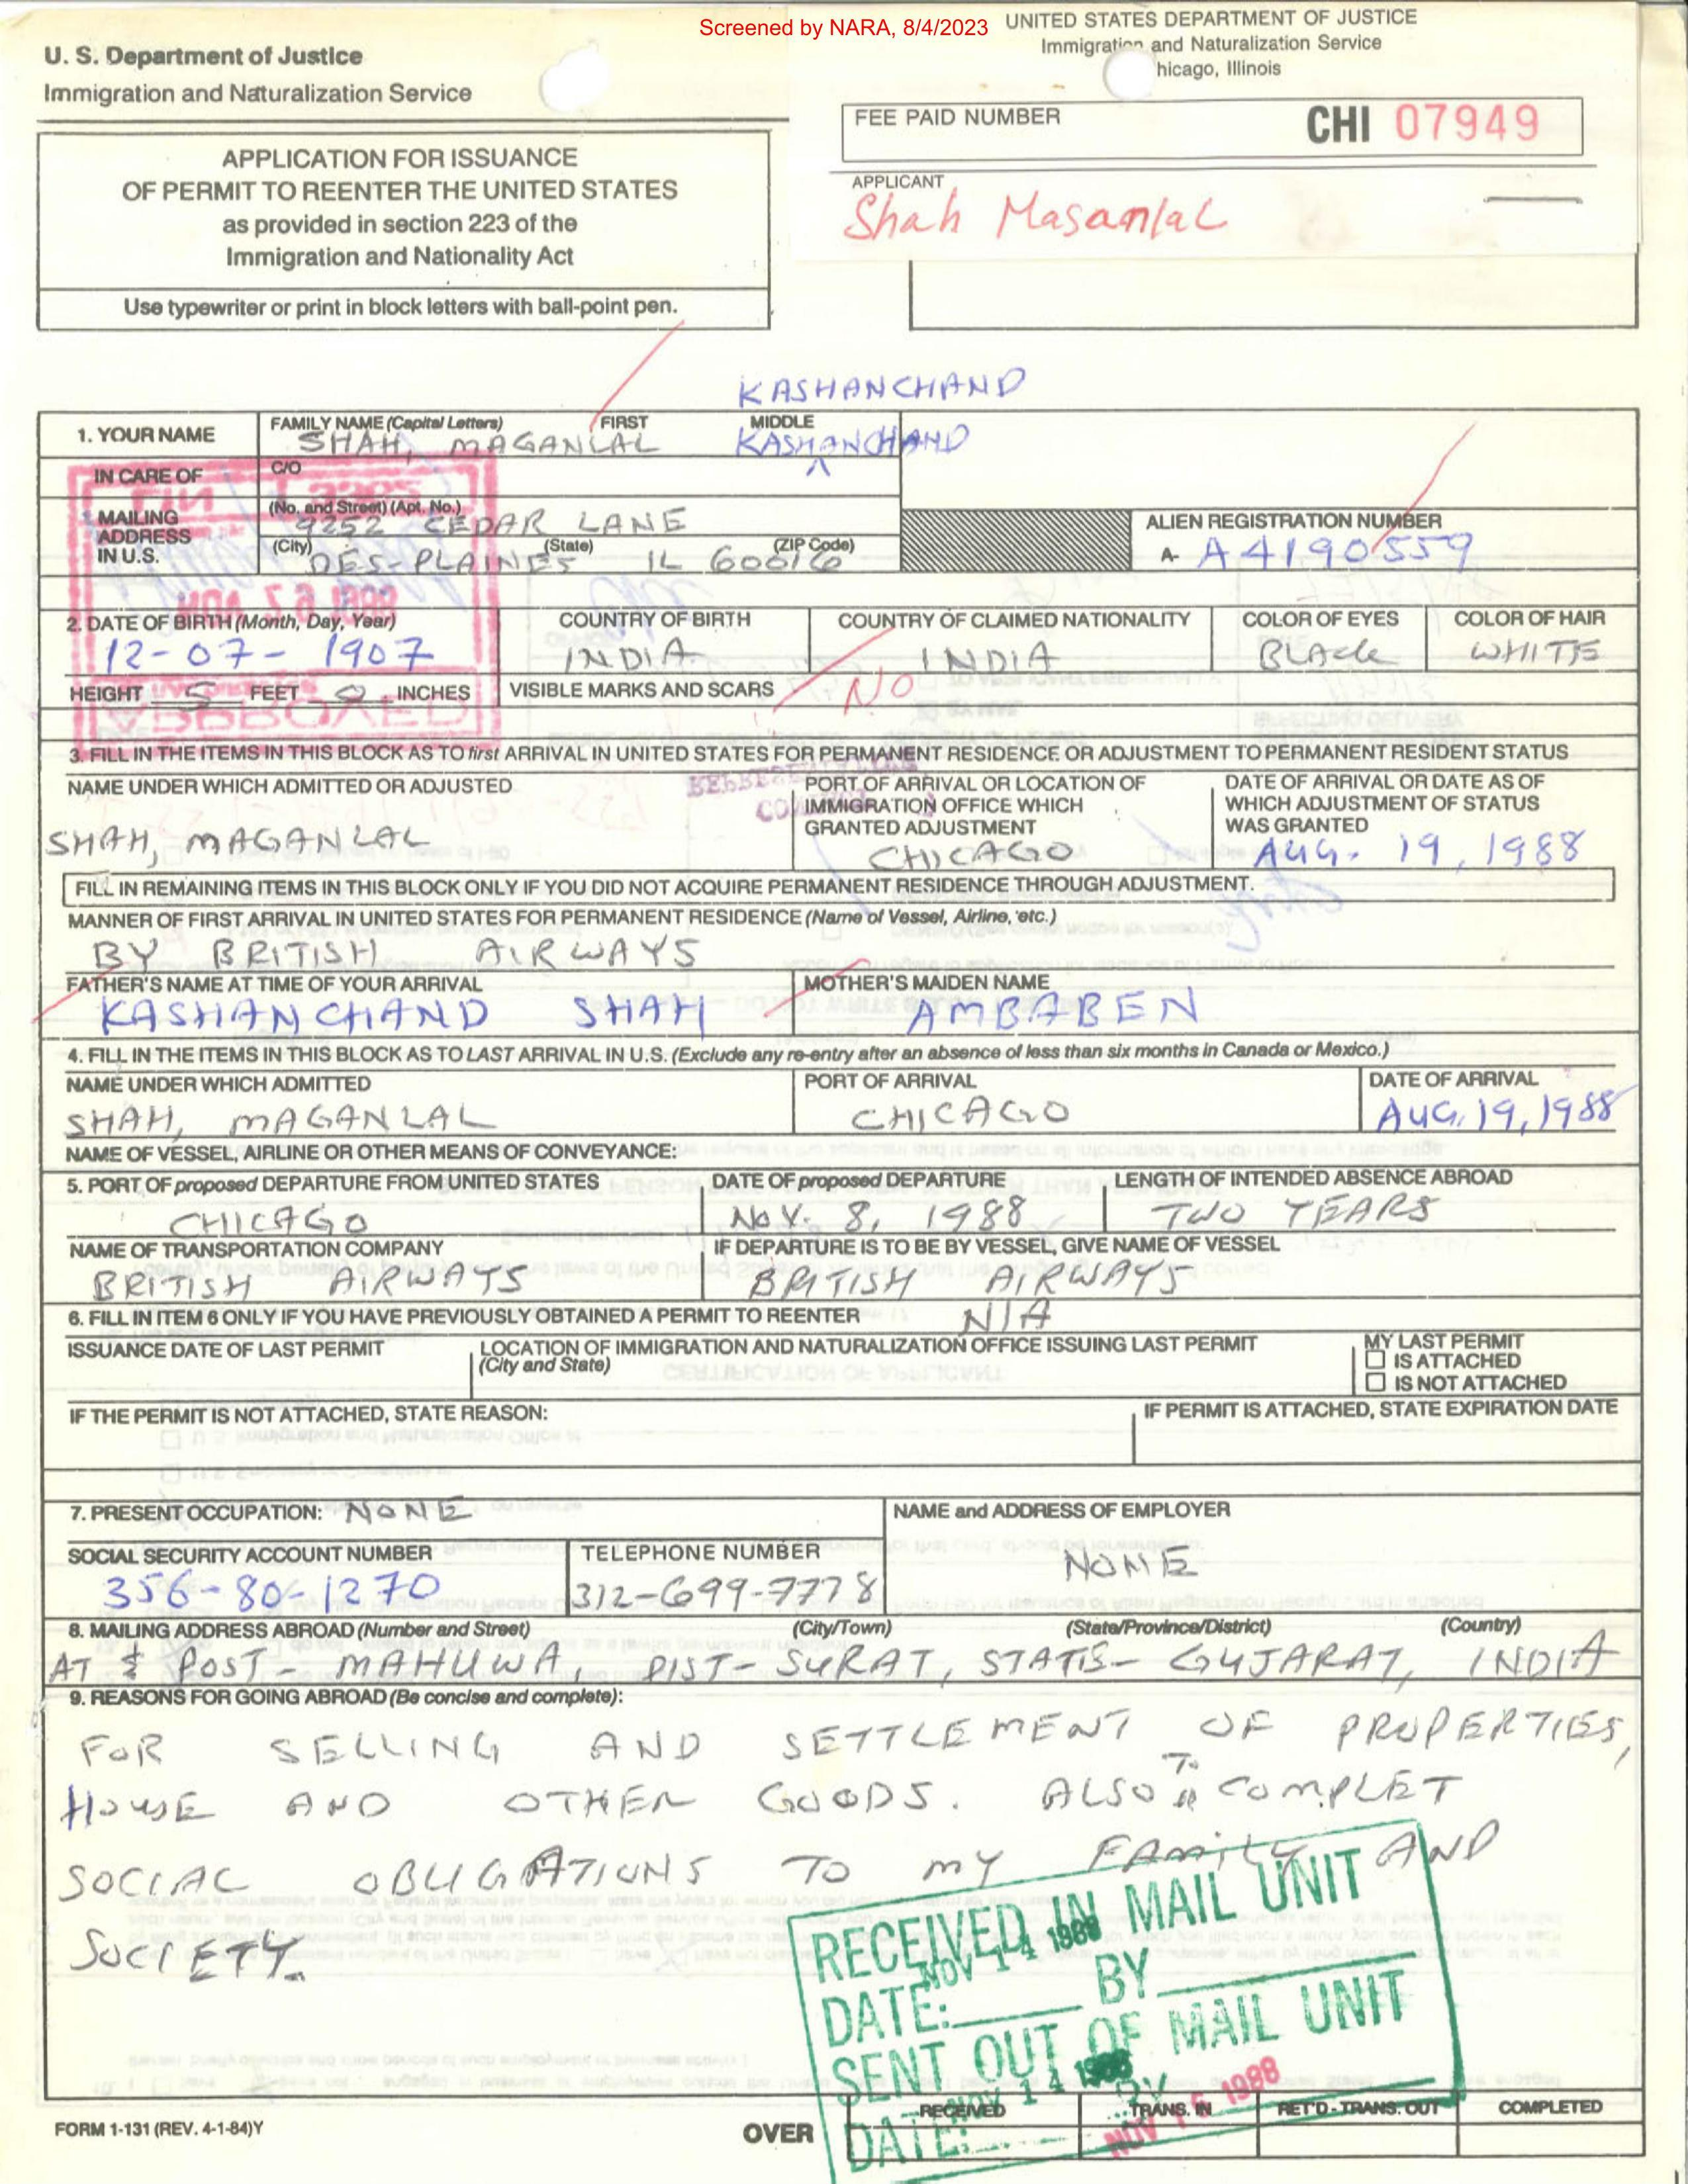 Screened by NARA, 8/4/2023
UNITED STATES DEPARTMENT OF JUSTICE
Immigration and Naturalization Service
hicago, Illinois
U. S. Department of Justice
Immigration and Naturalization Service
FEE PAID NUMBER CHI 07949
APPLICANT
Shah Masanlal
APPLICATION FOR ISSUANCE
OF PERMIT TO REENTER THE UNITED STATES
as provided in section 223 of the
Immigration and Nationality Act
Use typewriter or print in block letters with ball-point pen.
KASHANCHAND
1. YOUR NAME FAMILY NAME (Capital Letters) FIRST MIDDLE
SHAH, MAGANLAL KASHANCHAND
IN CARE OF C/O
MAILING ADDRESS IN U.S. (No. and Street) (Apt. No.)
9252 CEDAR LANE
(City) (State) (ZIP Code)
DES-PLAINES IL 60016
ALIEN REGISTRATION NUMBER
A- A4190559
2. DATE OF BIRTH (Month, Day, Year) COUNTRY OF BIRTH COUNTRY OF CLAIMED NATIONALITY COLOR OF EYES COLOR OF HAIR
12-07-1907 INDIA INDIA BLACK WHITE
HEIGHT 5 FEET 0 INCHES VISIBLE MARKS AND SCARS NO
APPROVED
3. FILL IN THE ITEMS IN THIS BLOCK AS TO first ARRIVAL IN UNITED STATES FOR PERMANENT RESIDENCE OR ADJUSTMENT TO PERMANENT RESIDENT STATUS
NAME UNDER WHICH ADMITTED OR ADJUSTED
SHAH, MAGANLAL
PORT OF ARRIVAL OR LOCATION OF
IMMIGRATION OFFICE WHICH
GRANTED ADJUSTMENT
CHICAGO
DATE OF ARRIVAL OR DATE AS OF
WHICH ADJUSTMENT OF STATUS
WAS GRANTED
AUG. 19, 1988
FILL IN REMAINING ITEMS IN THIS BLOCK ONLY IF YOU DID NOT ACQUIRE PERMANENT RESIDENCE THROUGH ADJUSTMENT.
MANNER OF FIRST ARRIVAL IN UNITED STATES FOR PERMANENT RESIDENCE (Name of Vessel, Airline, etc.)
BY BRITISH AIRWAYS
FATHER'S NAME AT TIME OF YOUR ARRIVAL MOTHER'S MAIDEN NAME
KASHANCHAND SHAH AMBABEN
4. FILL IN THE ITEMS IN THIS BLOCK AS TO LAST ARRIVAL IN U.S. (Exclude any re-entry after an absence of less than six months in Canada or Mexico.)
NAME UNDER WHICH ADMITTED PORT OF ARRIVAL DATE OF ARRIVAL
SHAH, MAGANLAL CHICAGO AUG. 19, 1988
NAME OF VESSEL, AIRLINE OR OTHER MEANS OF CONVEYANCE:
5. PORT OF proposed DEPARTURE FROM UNITED STATES DATE OF proposed DEPARTURE LENGTH OF INTENDED ABSENCE ABROAD
CHICAGO NOV. 8, 1988 TWO YEARS
NAME OF TRANSPORTATION COMPANY IF DEPARTURE IS TO BE BY VESSEL, GIVE NAME OF VESSEL
BRITISH AIRWAYS BRITISH AIRWAYS
6. FILL IN ITEM 6 ONLY IF YOU HAVE PREVIOUSLY OBTAINED A PERMIT TO REENTER N/A
ISSUANCE DATE OF LAST PERMIT LOCATION OF IMMIGRATION AND NATURALIZATION OFFICE ISSUING LAST PERMIT
(City and State)
MY LAST PERMIT
IS ATTACHED
IS NOT ATTACHED
IF THE PERMIT IS NOT ATTACHED, STATE REASON: IF PERMIT IS ATTACHED, STATE EXPIRATION DATE
7. PRESENT OCCUPATION: NONE NAME and ADDRESS OF EMPLOYER
NONE
SOCIAL SECURITY ACCOUNT NUMBER TELEPHONE NUMBER
356-80-1270 312-699-7778
8. MAILING ADDRESS ABROAD (Number and Street) (City/Town) (State/Province/District) (Country)
AT & POST- MAHUWA, DIST- SURAT, STATE- GUJARAT, INDIA
9. REASONS FOR GOING ABROAD (Be concise and complete):
FOR SELLING AND SETTLEMENT OF PROPERTIES,
HOUSE AND OTHER GOODS. ALSO TO COMPLET
SOCIAL OBLIGATIONS TO MY FAMILY AND
SOCIETY.
RECEIVED IN MAIL UNIT
NOV 14 1988
DATE: BY
SENT OUT OF MAIL UNIT
NOV 14 1988
DATE: BY
NOV 15 1988
RECEIVED TRANS. IN RET'D - TRANS. OUT COMPLETED
FORM 1-131 (REV. 4-1-84)Y
OVER